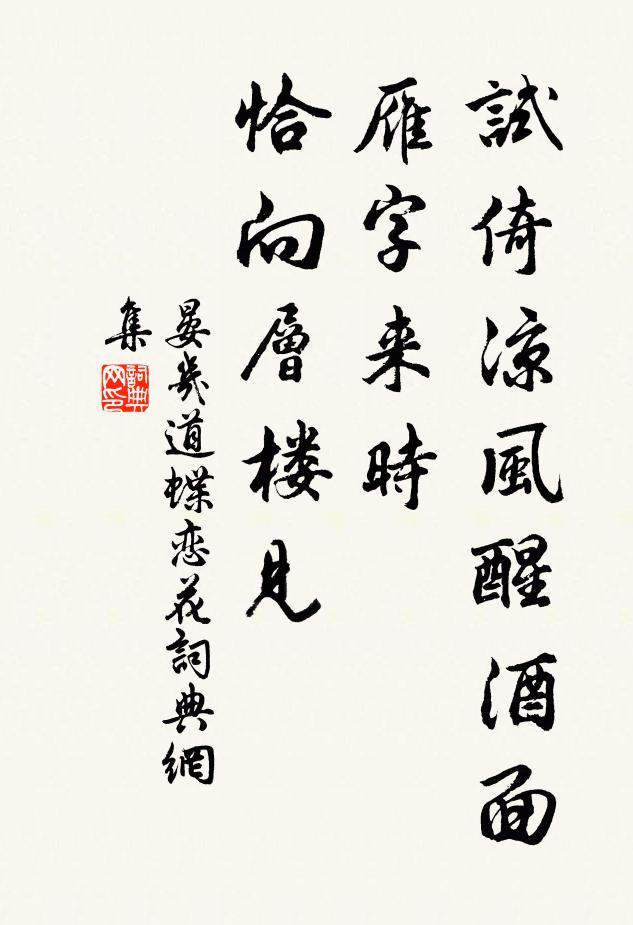 試倚涼風醒酒面
雁字来時
恰向層楼見
晏幾道蝶恋花詞典網
集
詞典网印